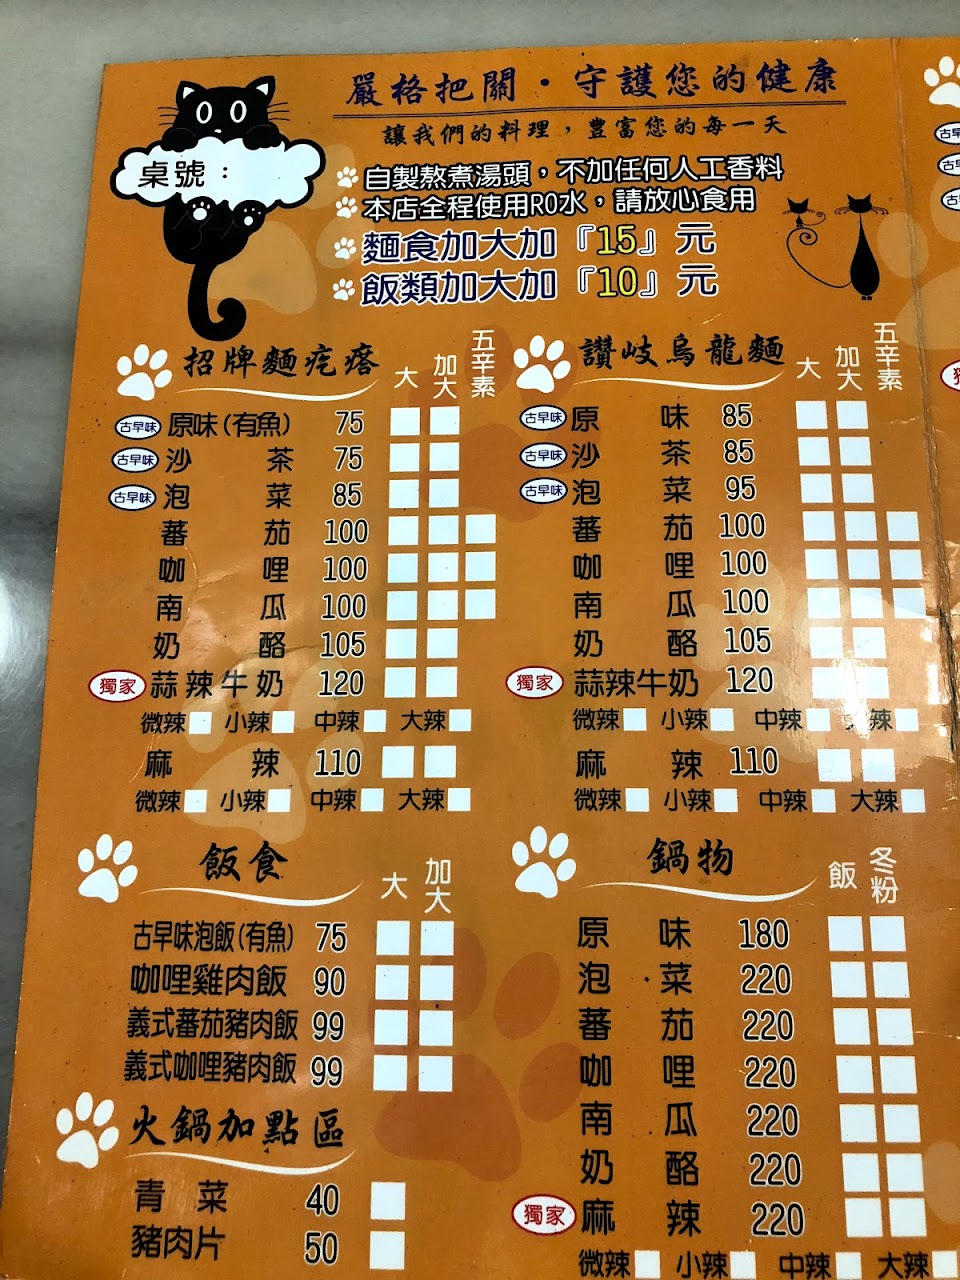 嚴格把關・守護您的健康
讓我們的料理，豐富您的每一天
桌號：
自製熬煮湯頭，不加任何人工香料
本店全程使用RO水，請放心食用
麵食加大加『15』元
飯類加大加『10』元
招牌麵疙瘩 大 加大 五辛素
古早味 原味(有魚) 75
古早味 沙茶 75
古早味 泡菜 85
蕃茄 100
咖哩 100
南瓜 100
奶酪 105
獨家 蒜辣牛奶 120
微辣 小辣 中辣 大辣
麻辣 110
微辣 小辣 中辣 大辣
讚岐烏龍麵 大 加大 五辛素
古早味 原味 85
古早味 沙茶 85
古早味 泡菜 95
蕃茄 100
咖哩 100
南瓜 100
奶酪 105
獨家 蒜辣牛奶 120
微辣 小辣 中辣 辣
麻辣 110
微辣 小辣 中辣 大辣
飯食 大 加大
古早味泡飯(有魚) 75
咖哩雞肉飯 90
義式蕃茄豬肉飯 99
義式咖哩豬肉飯 99
火鍋加點區
青菜 40
豬肉片 50
鍋物 飯 冬粉
原味 180
泡菜 220
蕃茄 220
咖哩 220
南瓜 220
奶酪 220
獨家 麻辣 220
微辣 小辣 中辣 大辣